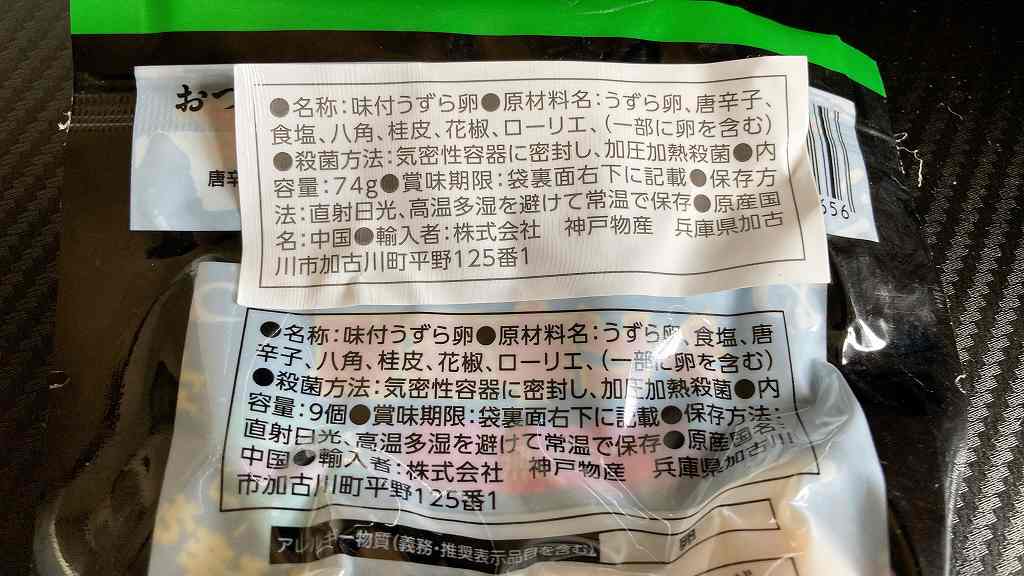 おつ
唐辛
●名称:味付うずら卵●原材料名:うずら卵、唐辛子、
食塩、八角、桂皮、花椒、ローリエ、(一部に卵を含む)
●殺菌方法:気密性容器に密封し、加圧加熱殺菌●内
容量:74g●賞味期限:袋裏面右下に記載●保存方
法:直射日光、高温多湿を避けて常温で保存●原産国
名:中国●輸入者:株式会社 神戸物産 兵庫県加古
川市加古川町平野125番1
656
●名称:味付うずら卵●原材料名:うずら卵、食塩、唐
辛子、八角、桂皮、花椒、ローリエ、(一部に卵を含む)
●殺菌方法:気密性容器に密封し、加圧加熱殺菌●内
容量:9個●賞味期限:袋裏面右下に記載●保存方法:
直射日光、高温多湿を避けて常温で保存●原産国名:
中国●輸入者:株式会社 神戸物産 兵庫県加古川
市加古川町平野125番1
アレルギー物質(義務・推奨表示品目を含む)
卵